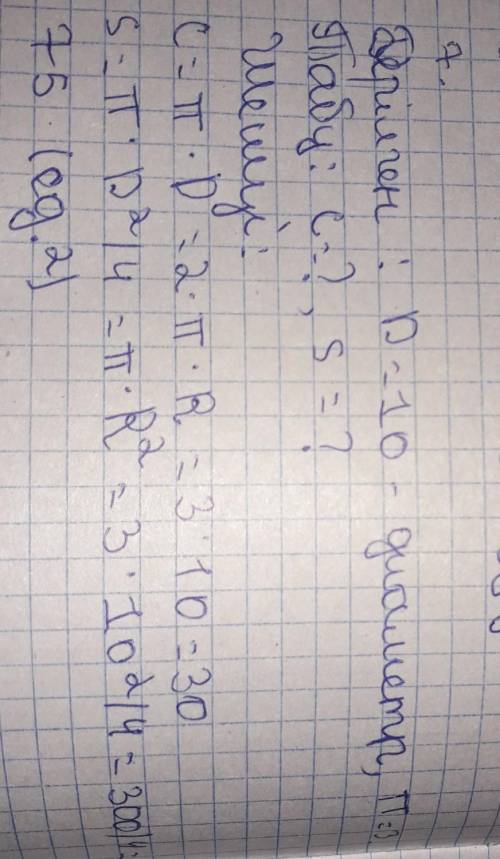 7.
Берілген: D=10 - диаметр, π=3
Табу: C=?, S=?
Шешуі:
C=π·D=2·π·R=3·10=30
S=π·D²/4=π·R²=3·10²/4=300/4=
75 (ед.2)